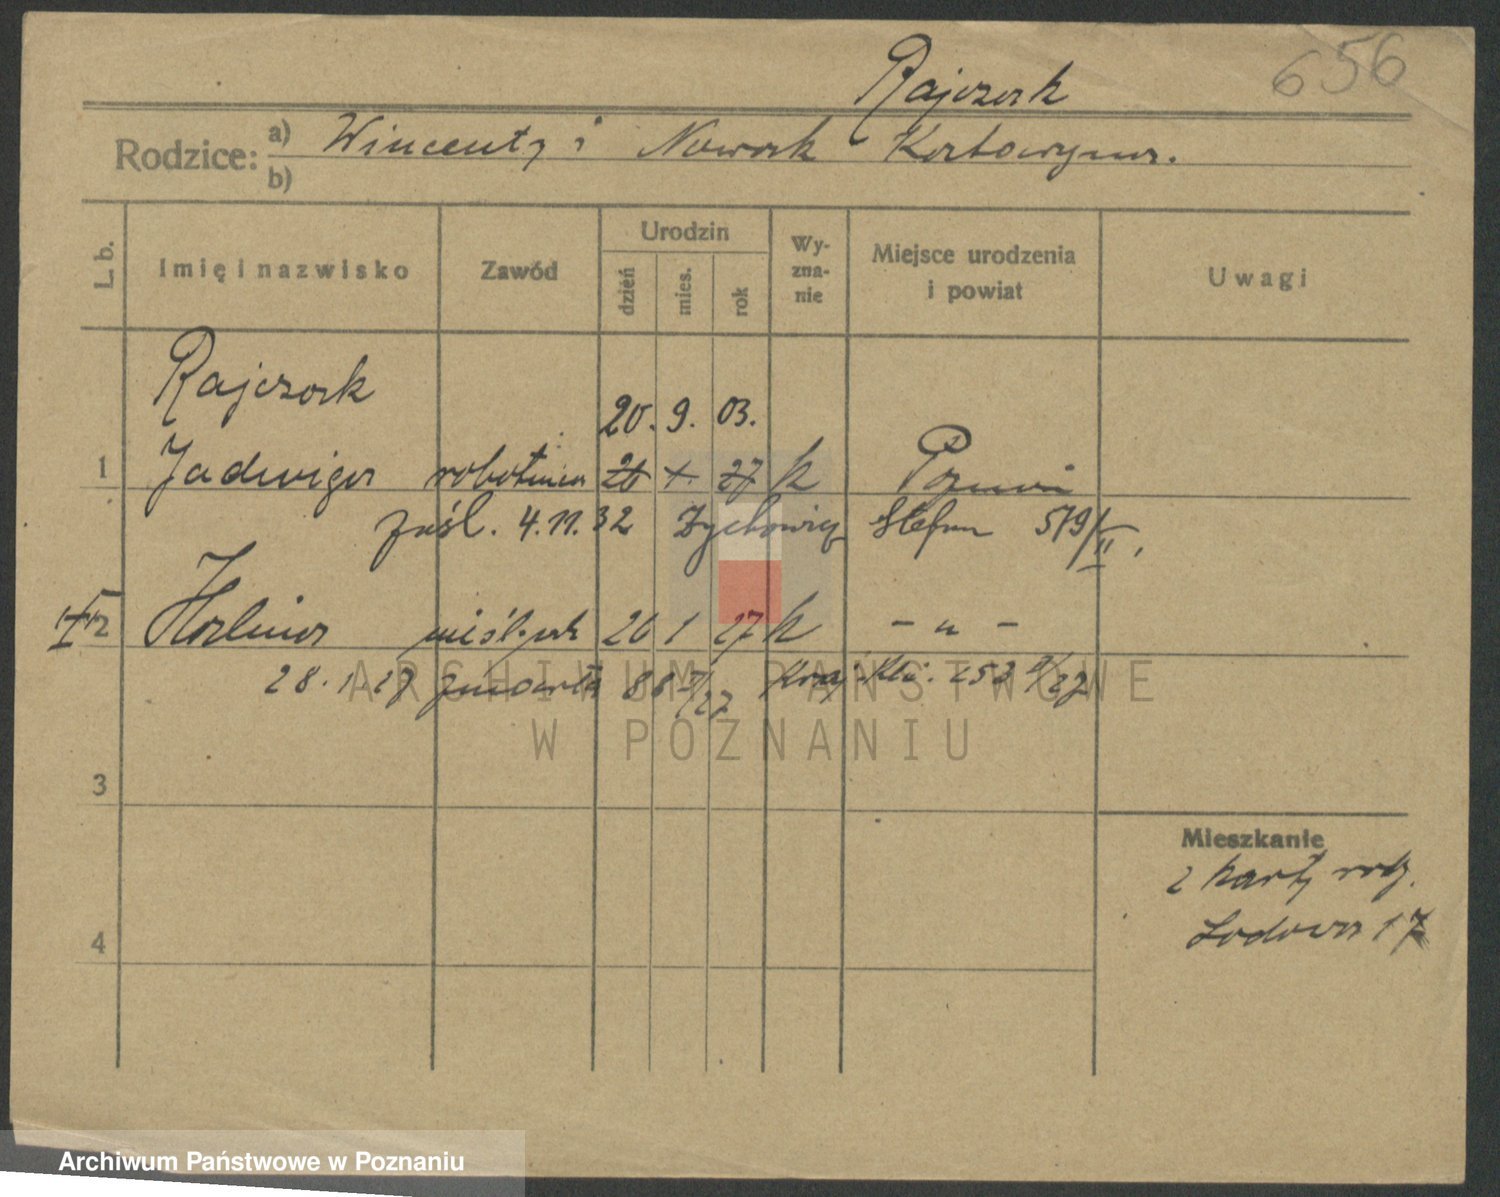 Rajczak 656
Rodzice: a) Wincenty i Nowak Katarzyna.
b)
L. b. Imię i nazwisko Zawód Urodzin dzień mies. rok Wyznanie Miejsce urodzenia i powiat Uwagi
Rajczak
20. 9. 03.
1 Jadwiga robotnica 26 1. 27 k Poznań
zaśl. 4.11.32 Zychowicz Stefan 519/II.
2 Halina nieśl. 26 1 27 k – „ –
28. 1. 27 zmarła 86 /27 253 /27
3
4
Mieszkanie
z karty rodz.
Lodowa 17
ARCHIWUM PAŃSTWOWE
W POZNANIU
Archiwum Państwowe w Poznaniu